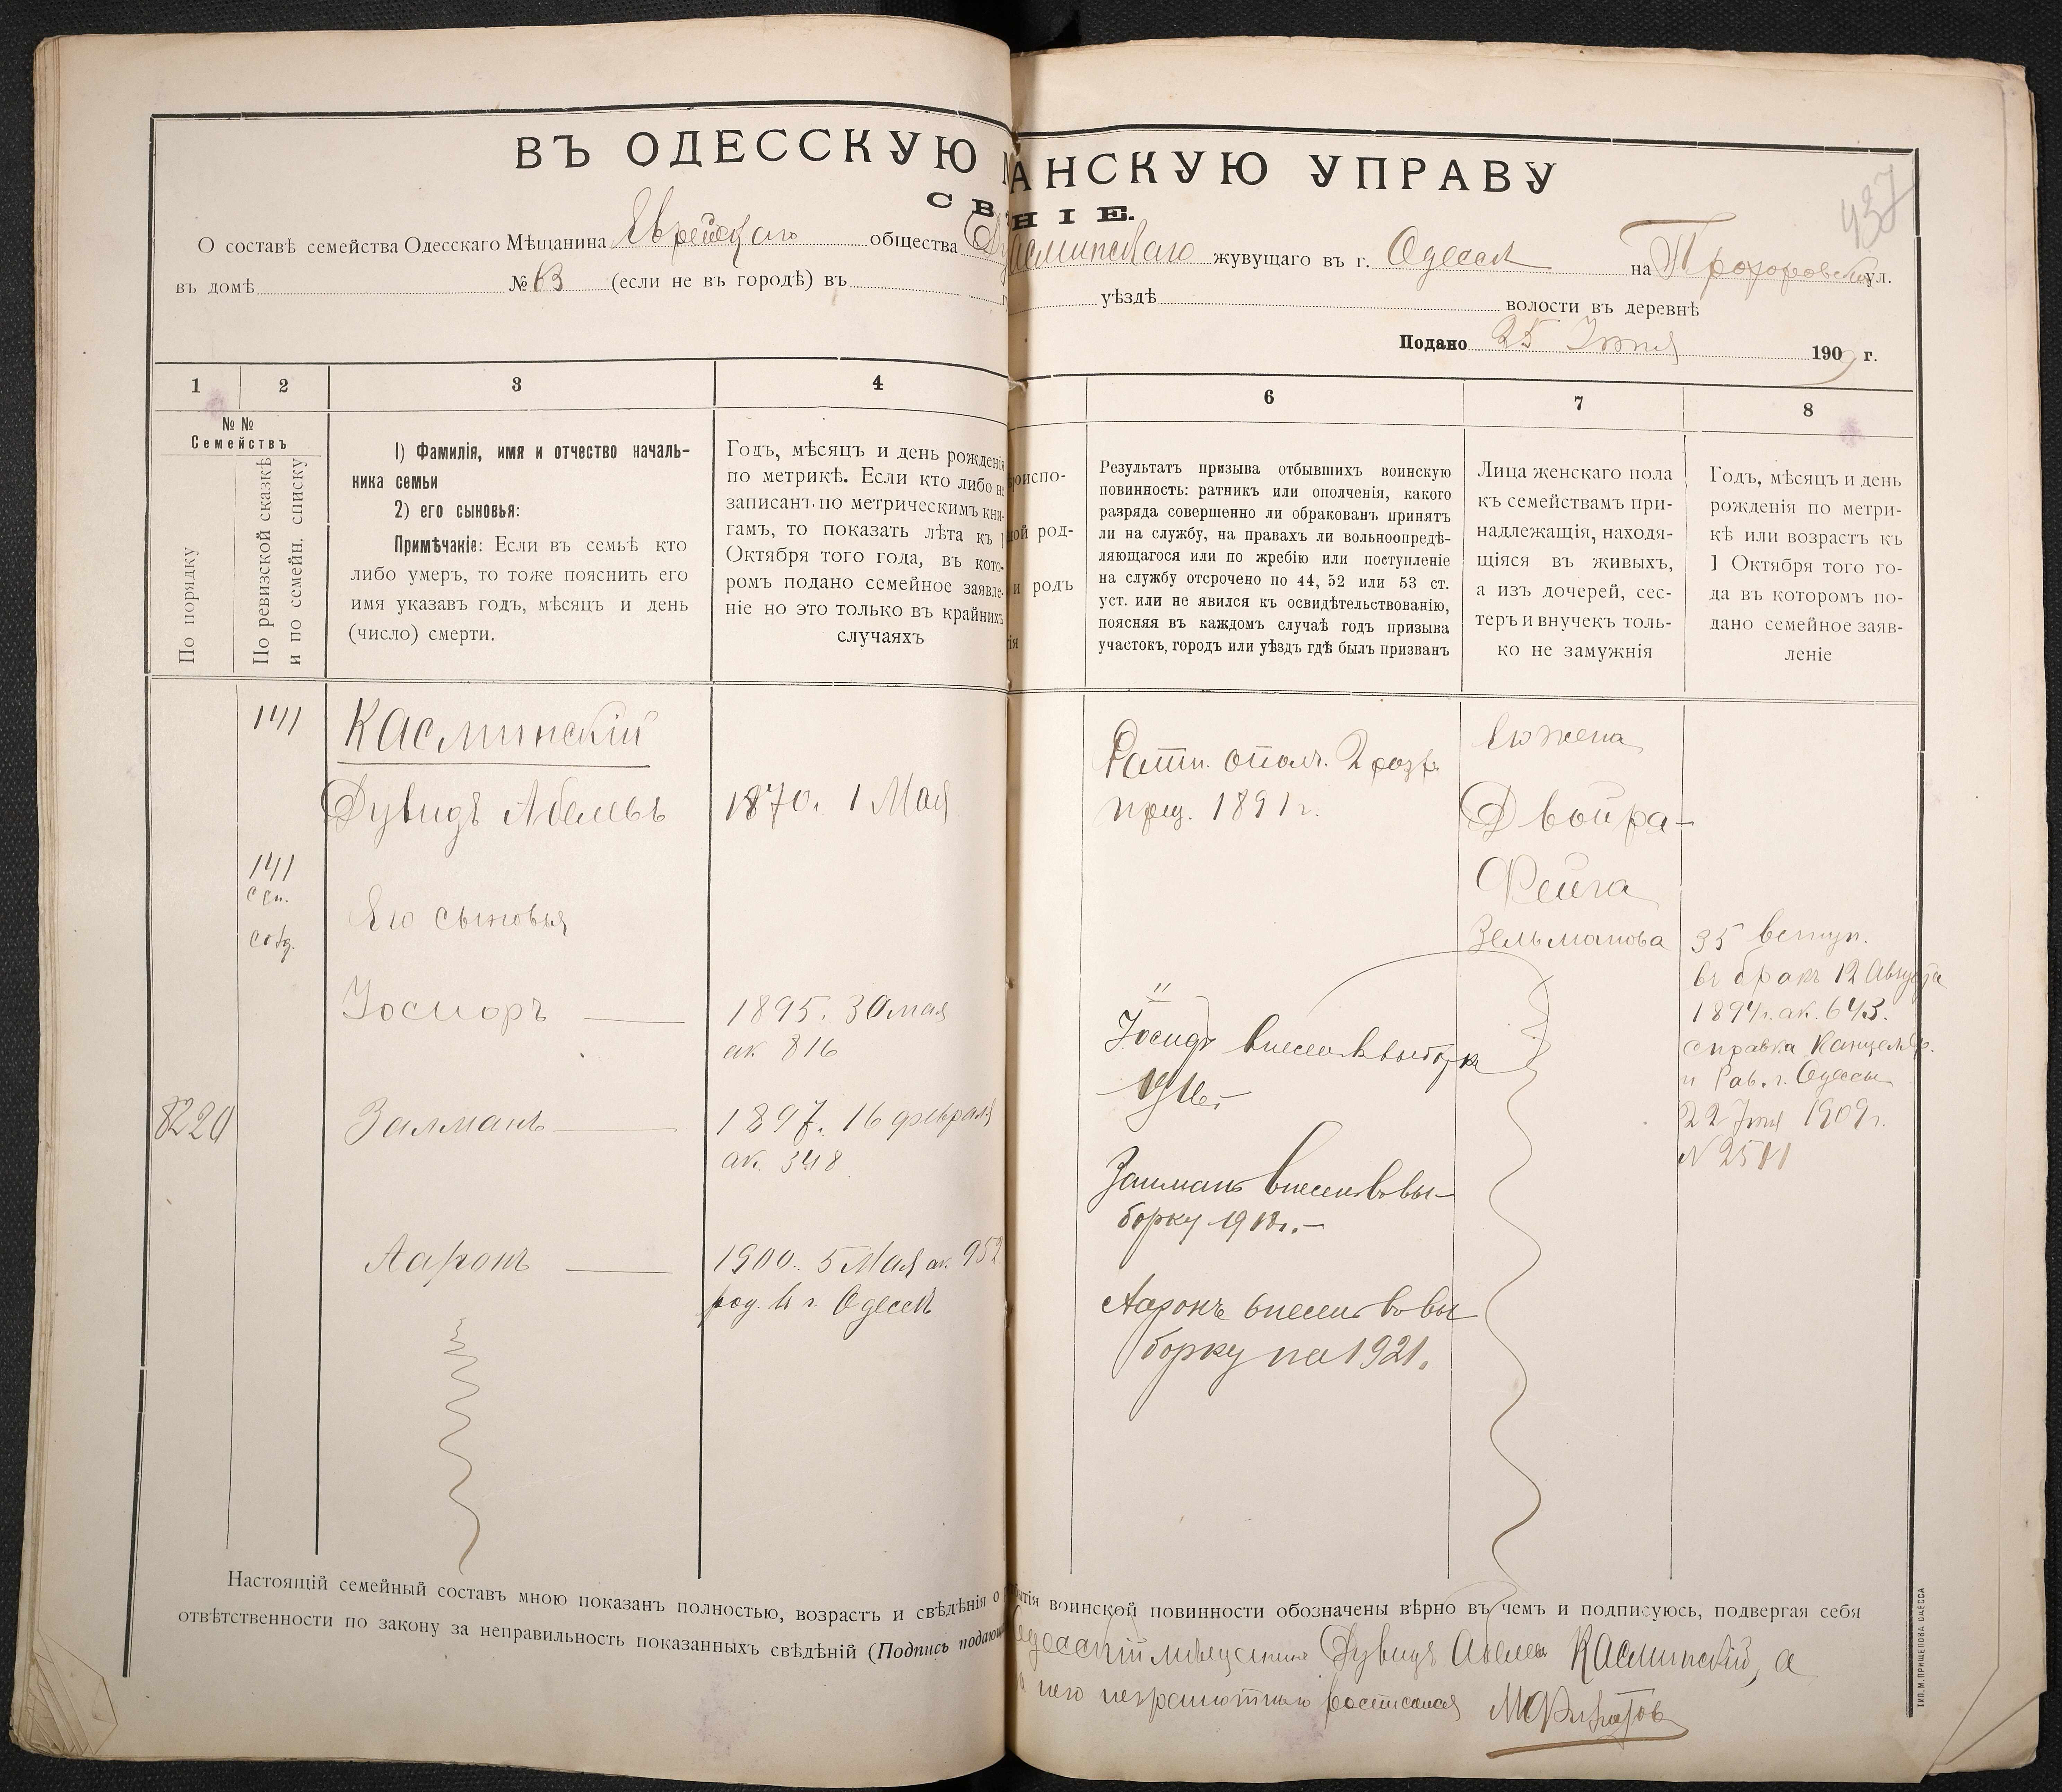 437
ВЪ ОДЕССКУЮ М АНСКУЮ УПРАВУ
СВ НІЕ.
О составѣ семейства Одесскаго Мѣщанина Еврейскаго общества Касминскаго жувущаго въ г. Одессѣ на Прохоровской ул.
въ домѣ № 63 (если не въ городѣ) въ уѣздѣ волости въ деревнѣ
Подано 25 Іюня 1909 г.
1 2 3 4 6 7 8
№№
Семействъ
По порядку
По ревизской сказкѣ
и по семейн. списку
1) Фамилія, имя и отчество началь-
ника семьи
2) его сыновья:
Примѣчакіе: Если въ семьѣ кто
либо умеръ, то тоже пояснить его
имя указавъ годъ, мѣсяцъ и день
(число) смерти.
Годъ, мѣсяцъ и день рожденія
по метрикѣ. Если кто либо не
записанъ по метрическимъ кни-
гамъ, то показать лѣта къ 1
Октября того года, въ кото-
ромъ подано семейное заявле-
ніе но это только въ крайнихъ
случаяхъ
роиспо-
ной род-
и родъ
тія
Результатъ призыва отбывшихъ воинскую
повинность: ратникъ или ополченія, какого
разряда совершенно ли обракованъ принятъ
ли на службу, на правахъ ли вольноопредѣ-
ляющагося или по жребію или поступленіе
на службу отсрочено по 44, 52 или 53 ст.
уст. или не явился къ освидѣтельствованію,
поясняя въ каждомъ случаѣ годъ призыва
участокъ, городъ или уѣздъ гдѣ былъ призванъ
Лица женскаго пола
къ семействамъ при-
надлежащія, находя-
щіяся въ живыхъ,
а изъ дочерей, сес-
теръ и внучекъ толь-
ко не замужнія
Годъ, мѣсяцъ и день
рожденія по метри-
кѣ или возрастъ къ
1 Октября того го-
да въ которомъ по-
дано семейное заяв-
леніе
141
Касминскій
Дувидъ Абелевъ
1870. 1 Мая
141
сем.
Его сыновья
Іосифъ
1895. 30 мая
ак 816
8220
Залманъ
1897. 16 февраля
ак. 348
Ааронъ
1900. 5 Мая ак. 952
род. въ г. Одессѣ
Ратн. ополч. 2 разр.
приз. 1891 г.
Іосифъ внесенъ въ выборку
1916 г.
Залманъ внесенъ во вы-
борку 1918 г. —
Ааронъ внесенъ во вы
борку на 1921.
Его жена
Двойра-
Фейга
Зельманова
35 вступ.
въ бракъ 12 Августа
1894 г. ак. 643.
справка Канцеляр.
Рав. г. Одессы
22 Іюня 1909 г.
№ 2511
Настоящій семейный составъ мною показанъ полностью, возрастъ и свѣдѣнія о бытія воинской повинности обозначены вѣрно въ чемъ и подписуюсь, подвергая себя
отвѣтственности по закону за неправильность показанныхъ свѣдѣній (Подпись подающ Одесскій мѣщанинъ Дувидъ Абелевъ Касминскій, а
за него неграмотнаго расписался
ТИП. М. ПРИЩЕПОВА ОДЕССА